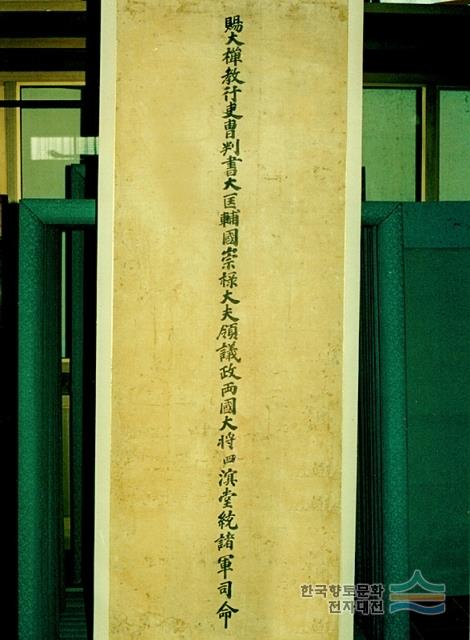 賜大禅教行吏曺判書大匡輔國崇禄大夫領議政兩國大将四溟堂統諸軍司命
한국향토문화
전자대전